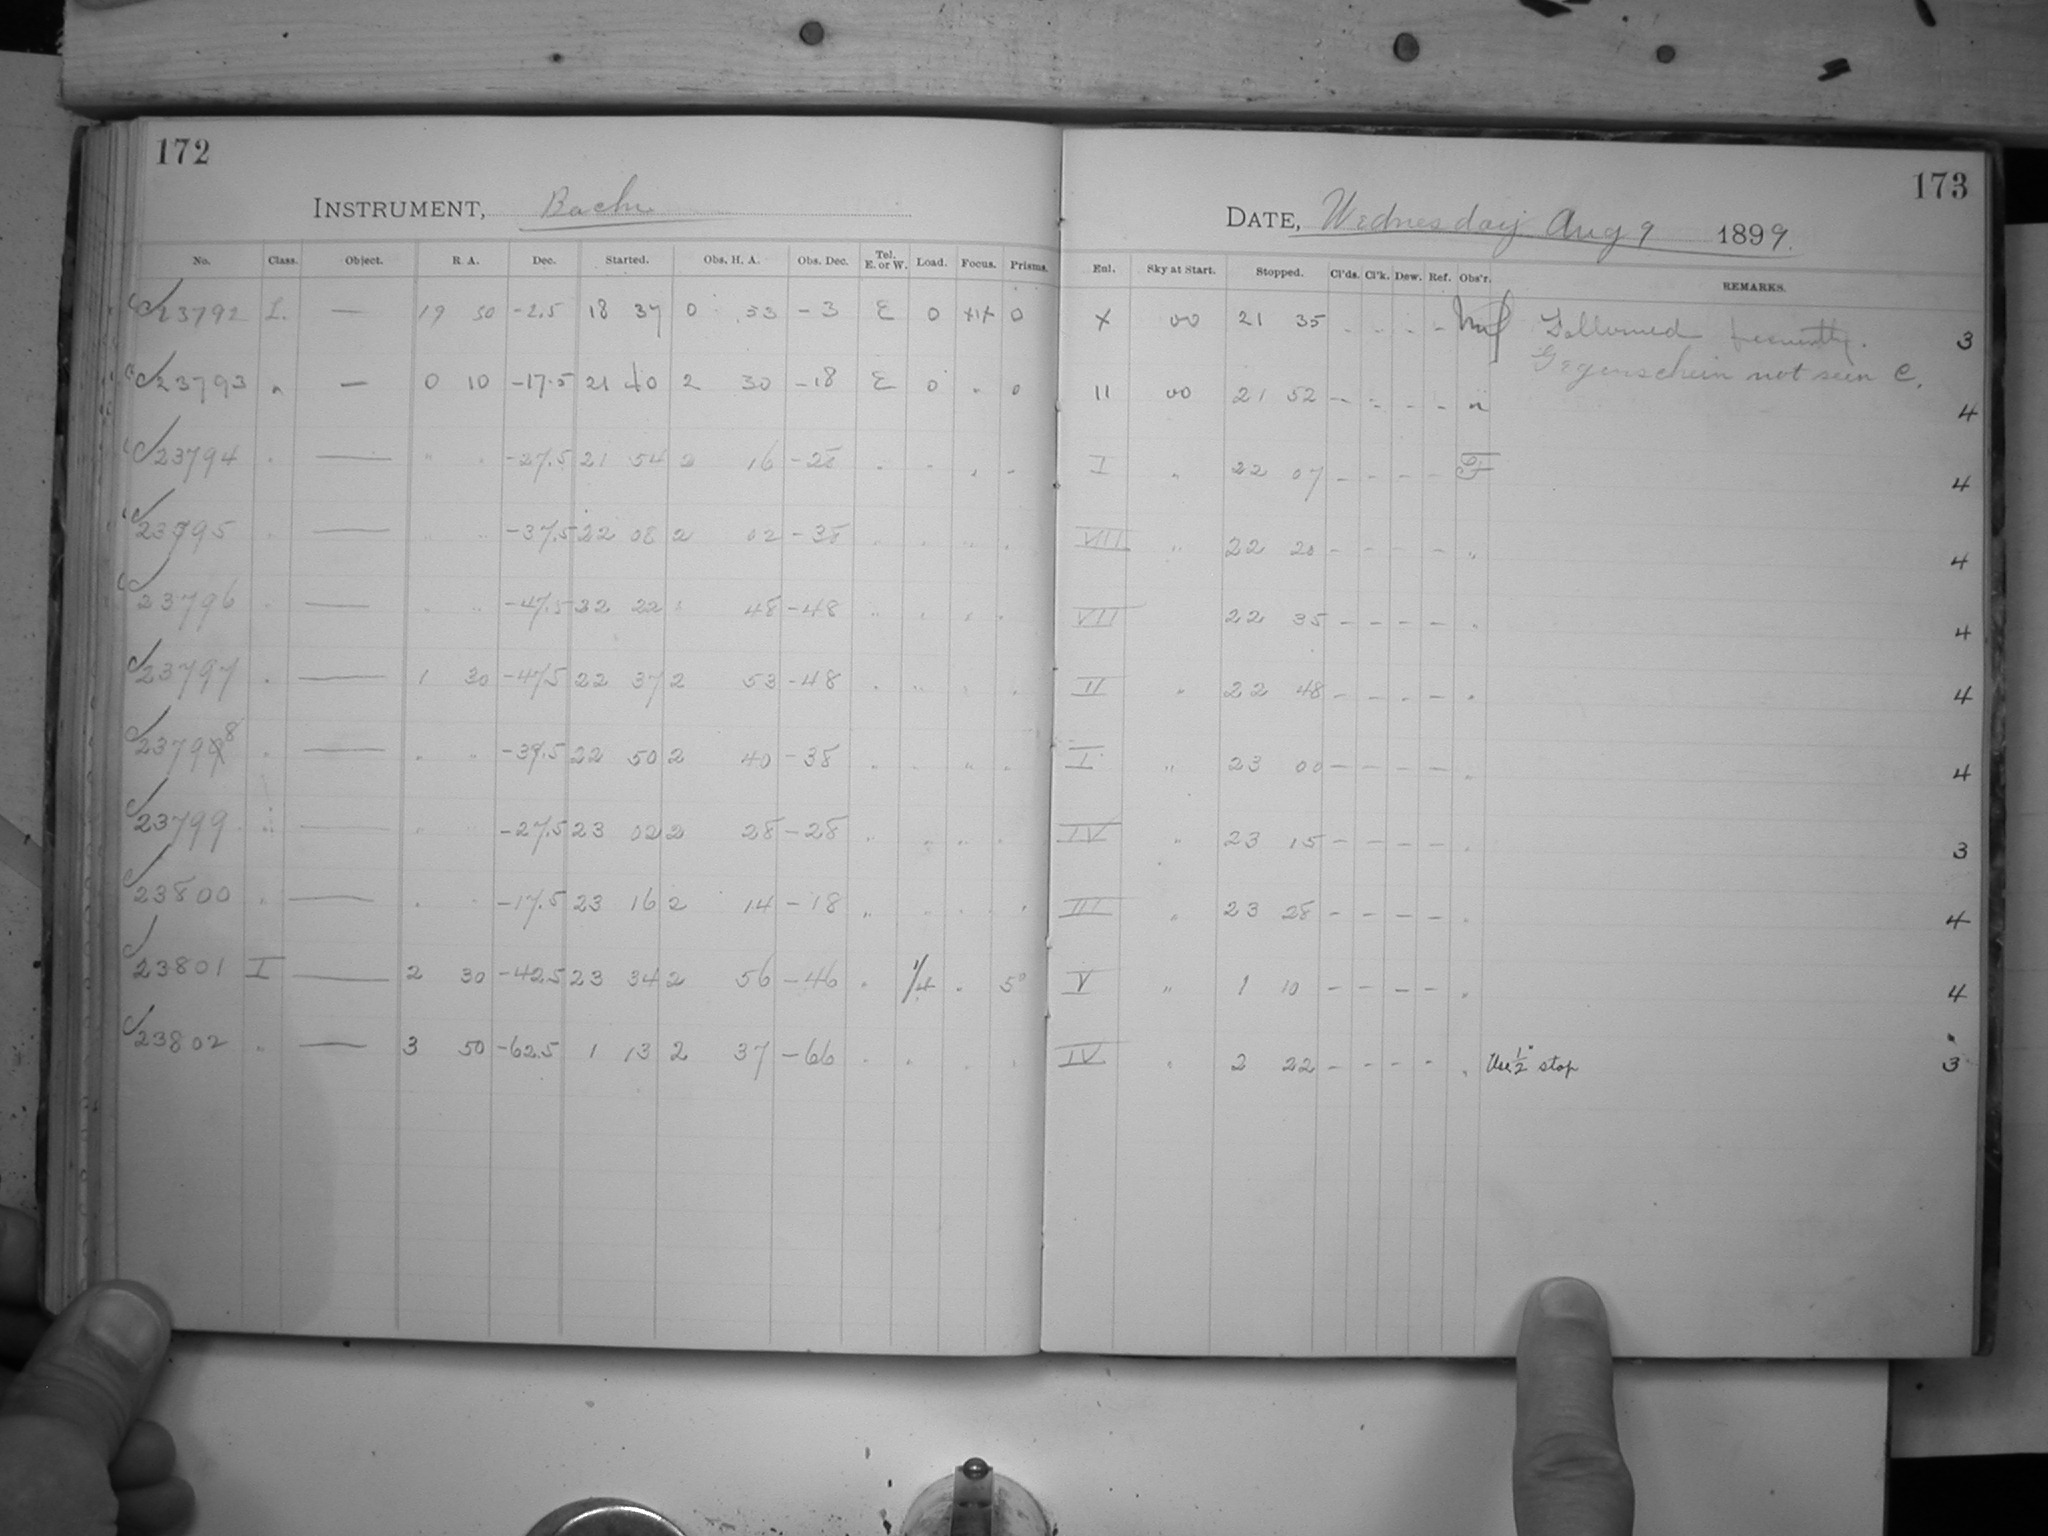 172
INSTRUMENT, Bache
No. Class. Object. R. A. Dec. Started. Obs. H. A. Obs. Dec. Tel. E. or W. Load. Focus. Prisms.
C23792 L. — 19 50 -2.5 18 37 0 53 -3 E 0 0
C23793 " — 0 10 -17.5 21 40 2 30 -18 E 0 " 0
C23794 " — " " -27.5 21 54 2 16 -28 " " " "
C23795 " — " " -37.5 22 08 2 02 -38 " " " "
C23796 " — " " -47.5 22 22 48 -48 " " " "
C23797 " — 1 30 -47.5 22 37 2 53 -48 " " " "
C23798 " — " " 22 50 2 40 -38 " " " "
C23799 " — " " -27.5 23 02 2 28 -28 " " " "
C23800 " — " " -17.5 23 16 2 14 -18 " " " "
C23801 I — 2 30 -42.5 23 34 2 56 -46 " 1/4 " 5°
C23802 " — 3 50 -62.5 1 13 2 37 -66 " " " "
173
DATE, Wednesday Aug 9 1899.
Enl. Sky at Start. Stopped. Cl'ds. Cl'k. Dew. Ref. Obs'r. REMARKS.
X 00 21 35 - - - - Followed frequently. 3
Gegenschein not seen C.
II 00 21 52 - - - - " 4
I " 22 07 - - - - F 4
VIII " 22 20 - - - - " 4
VII 22 35 - - - - " 4
II " 22 48 - - - - " 4
I " 23 00 - - - - " 4
IV " 23 15 - - - - " 3
III " 23 28 - - - - " 4
V " 1 10 - - - - " 4
IV " 2 22 - - - - " Use 1/2" stop 3